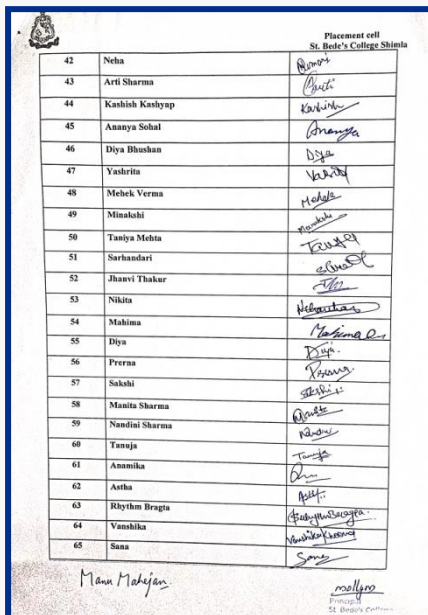 Placement cell
St. Bede's College Shimla
42 Neha
43 Arti Sharma Aarti
44 Kashish Kashyap Kashish
45 Ananya Sohal Ananya
46 Diya Bhushan Diya
47 Yashrita
48 Mehek Verma Mehek
49 Minakshi Minakshi
50 Taniya Mehta
51 Sarhandari
52 Jhanvi Thakur
53 Nikita
54 Mahima Mahima
55 Diya Diya
56 Prerna Prerna
57 Sakshi Sakshi
58 Manita Sharma
59 Nandini Sharma
60 Tanuja Tanuja
61 Anamika
62 Astha
63 Rhythm Bragta Rhythm Bragta
64 Vanshika
65 Sana Sana
Manu Mahajan
Principal
St. Bede's College